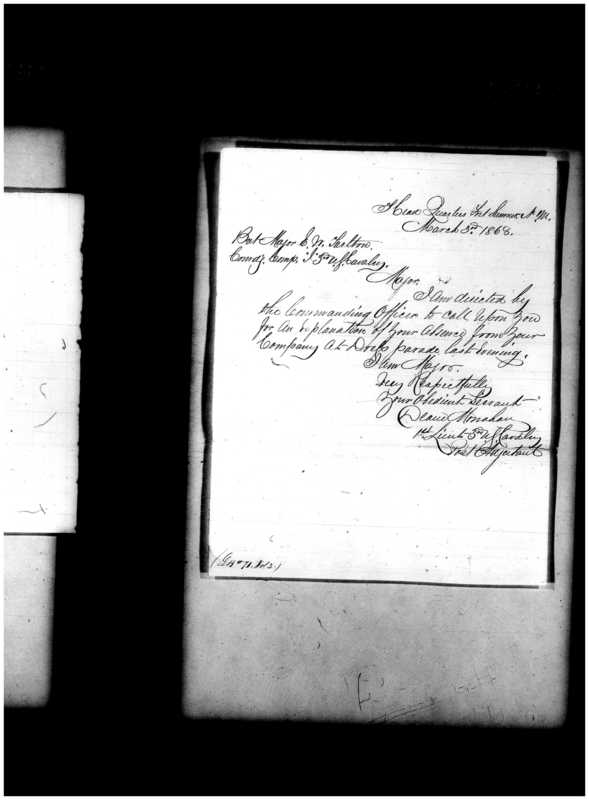 Head Quarters Fort Sumner N. M.
March 3rd 1868.
Bvt Major E. W.
Comdg. Comp. "I" 3rd U.S. Cavalry.
Major,
I am directed by
the Commanding Officer to call upon you
for an explanation of your absence from your
Company at Dress parade last Evening.
I am Major.
Very Respectfully
Your Obedient Servant
Deane Monahan
1st Lieut 3rd U.S. Cavalry
Post Adjutant